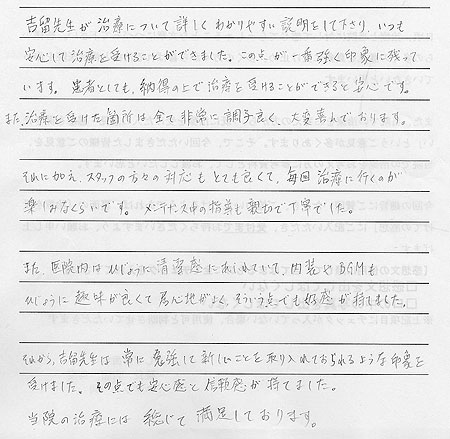 吉留先生が治療について詳しくわかりやすい説明をして下さり、いつも
安心して治療を受けることができました。この点が一番強く印象に残って
います。患者としても、納得の上で治療を受けることができると安心です。
また、治療を受けた箇所は全て非常に調子良く、大変喜んでおります。
それに加え、スタッフの方々の対応もとても良くて、毎回治療に行くのが
楽しみなくらいです。メンテナンス中の指導も親切で丁寧でした。
また、医院内はひじょうに清潔感にあふれていて、内装やBGMも
ひじょうに趣味が良くて居心地がよく、そういう点でも好感が持てました。
それから、吉留先生は常に勉強して新しいことを取り入れておられるような印象を
受けました。その点でも安心感と信頼感が持てました。
当院の治療には総じて満足しております。